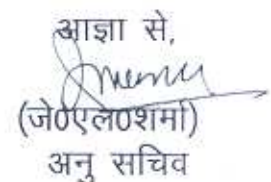 आज्ञा से,
(जे0एल0शर्मा)
अनु सचिव